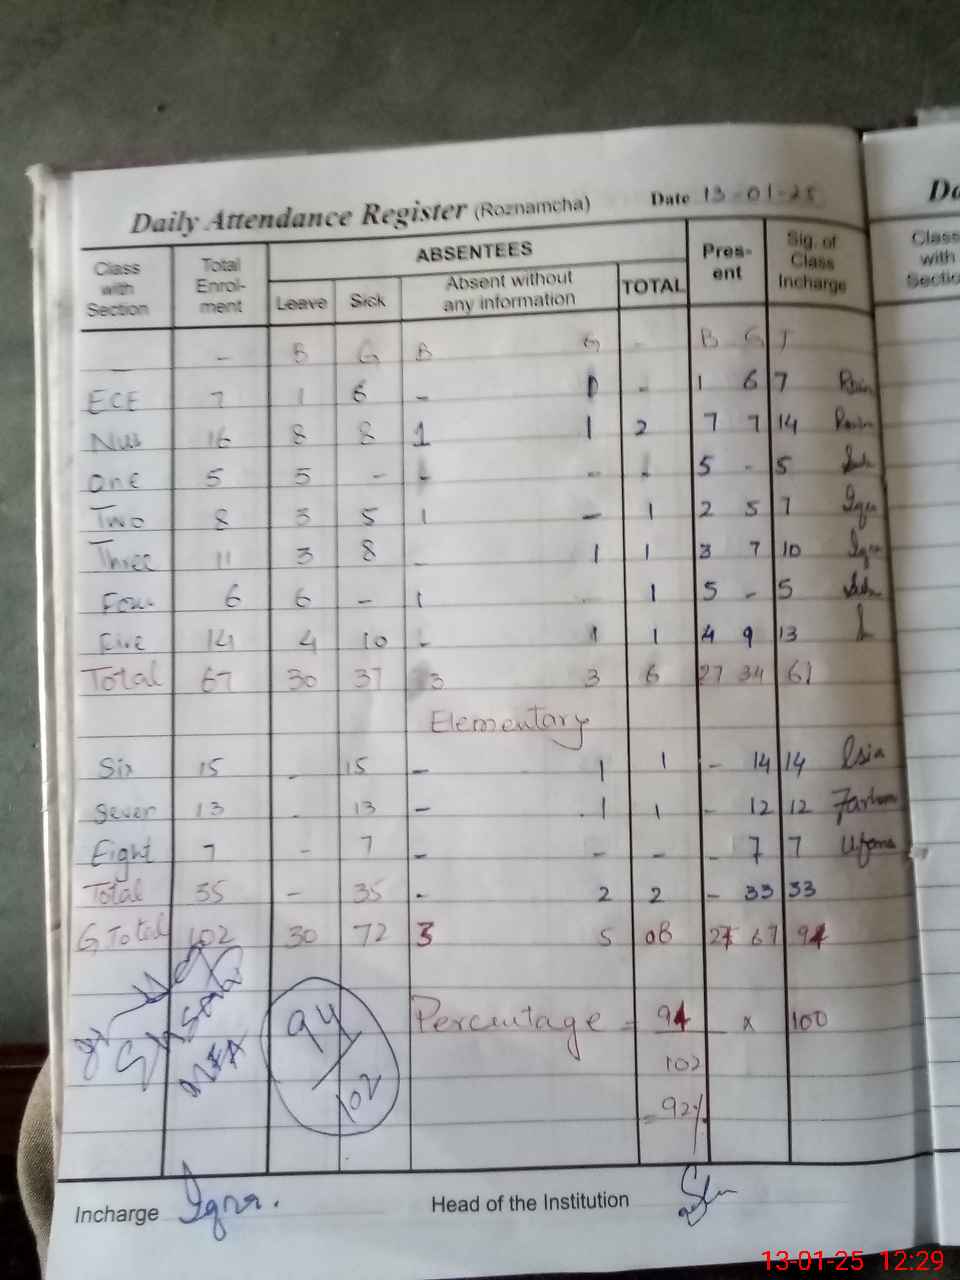 Daily Attendance Register (Roznamcha) Date 13-01-25
Class with Section Total Enrol-ment ABSENTEES Pres-ent Sig. of Class Incharge
Leave Sick Absent without any information TOTAL
- B G B G - B G T
ECE 7 1 6 - - 1 6 7
Nus 16 8 8 1 1 2 7 7 14
One 5 5 - - - - 5 - 5
Two 8 3 5 1 - 1 2 5 7 Iqra
Three 11 3 8 - 1 1 3 7 10 Iqra
Four 6 6 - 1 1 5 - 5
Five 14 4 10 - 1 1 4 9 13
Total 67 30 37 3 3 6 27 34 61
Elementary
Six 15 - 15 - 1 1 - 14 14
Seven 13 - 13 - 1 1 - 12 12
Eight 7 - 7 - - - - 7 7
Total 35 - 35 - 2 2 - 33 33
G Total 102 30 72 3 5 08 27 67 94
94/102
Percentage = 94 x 100
102
= 92%
Incharge Iqra. Head of the Institution
Da
Class with Sectio
13-01-25 12:29